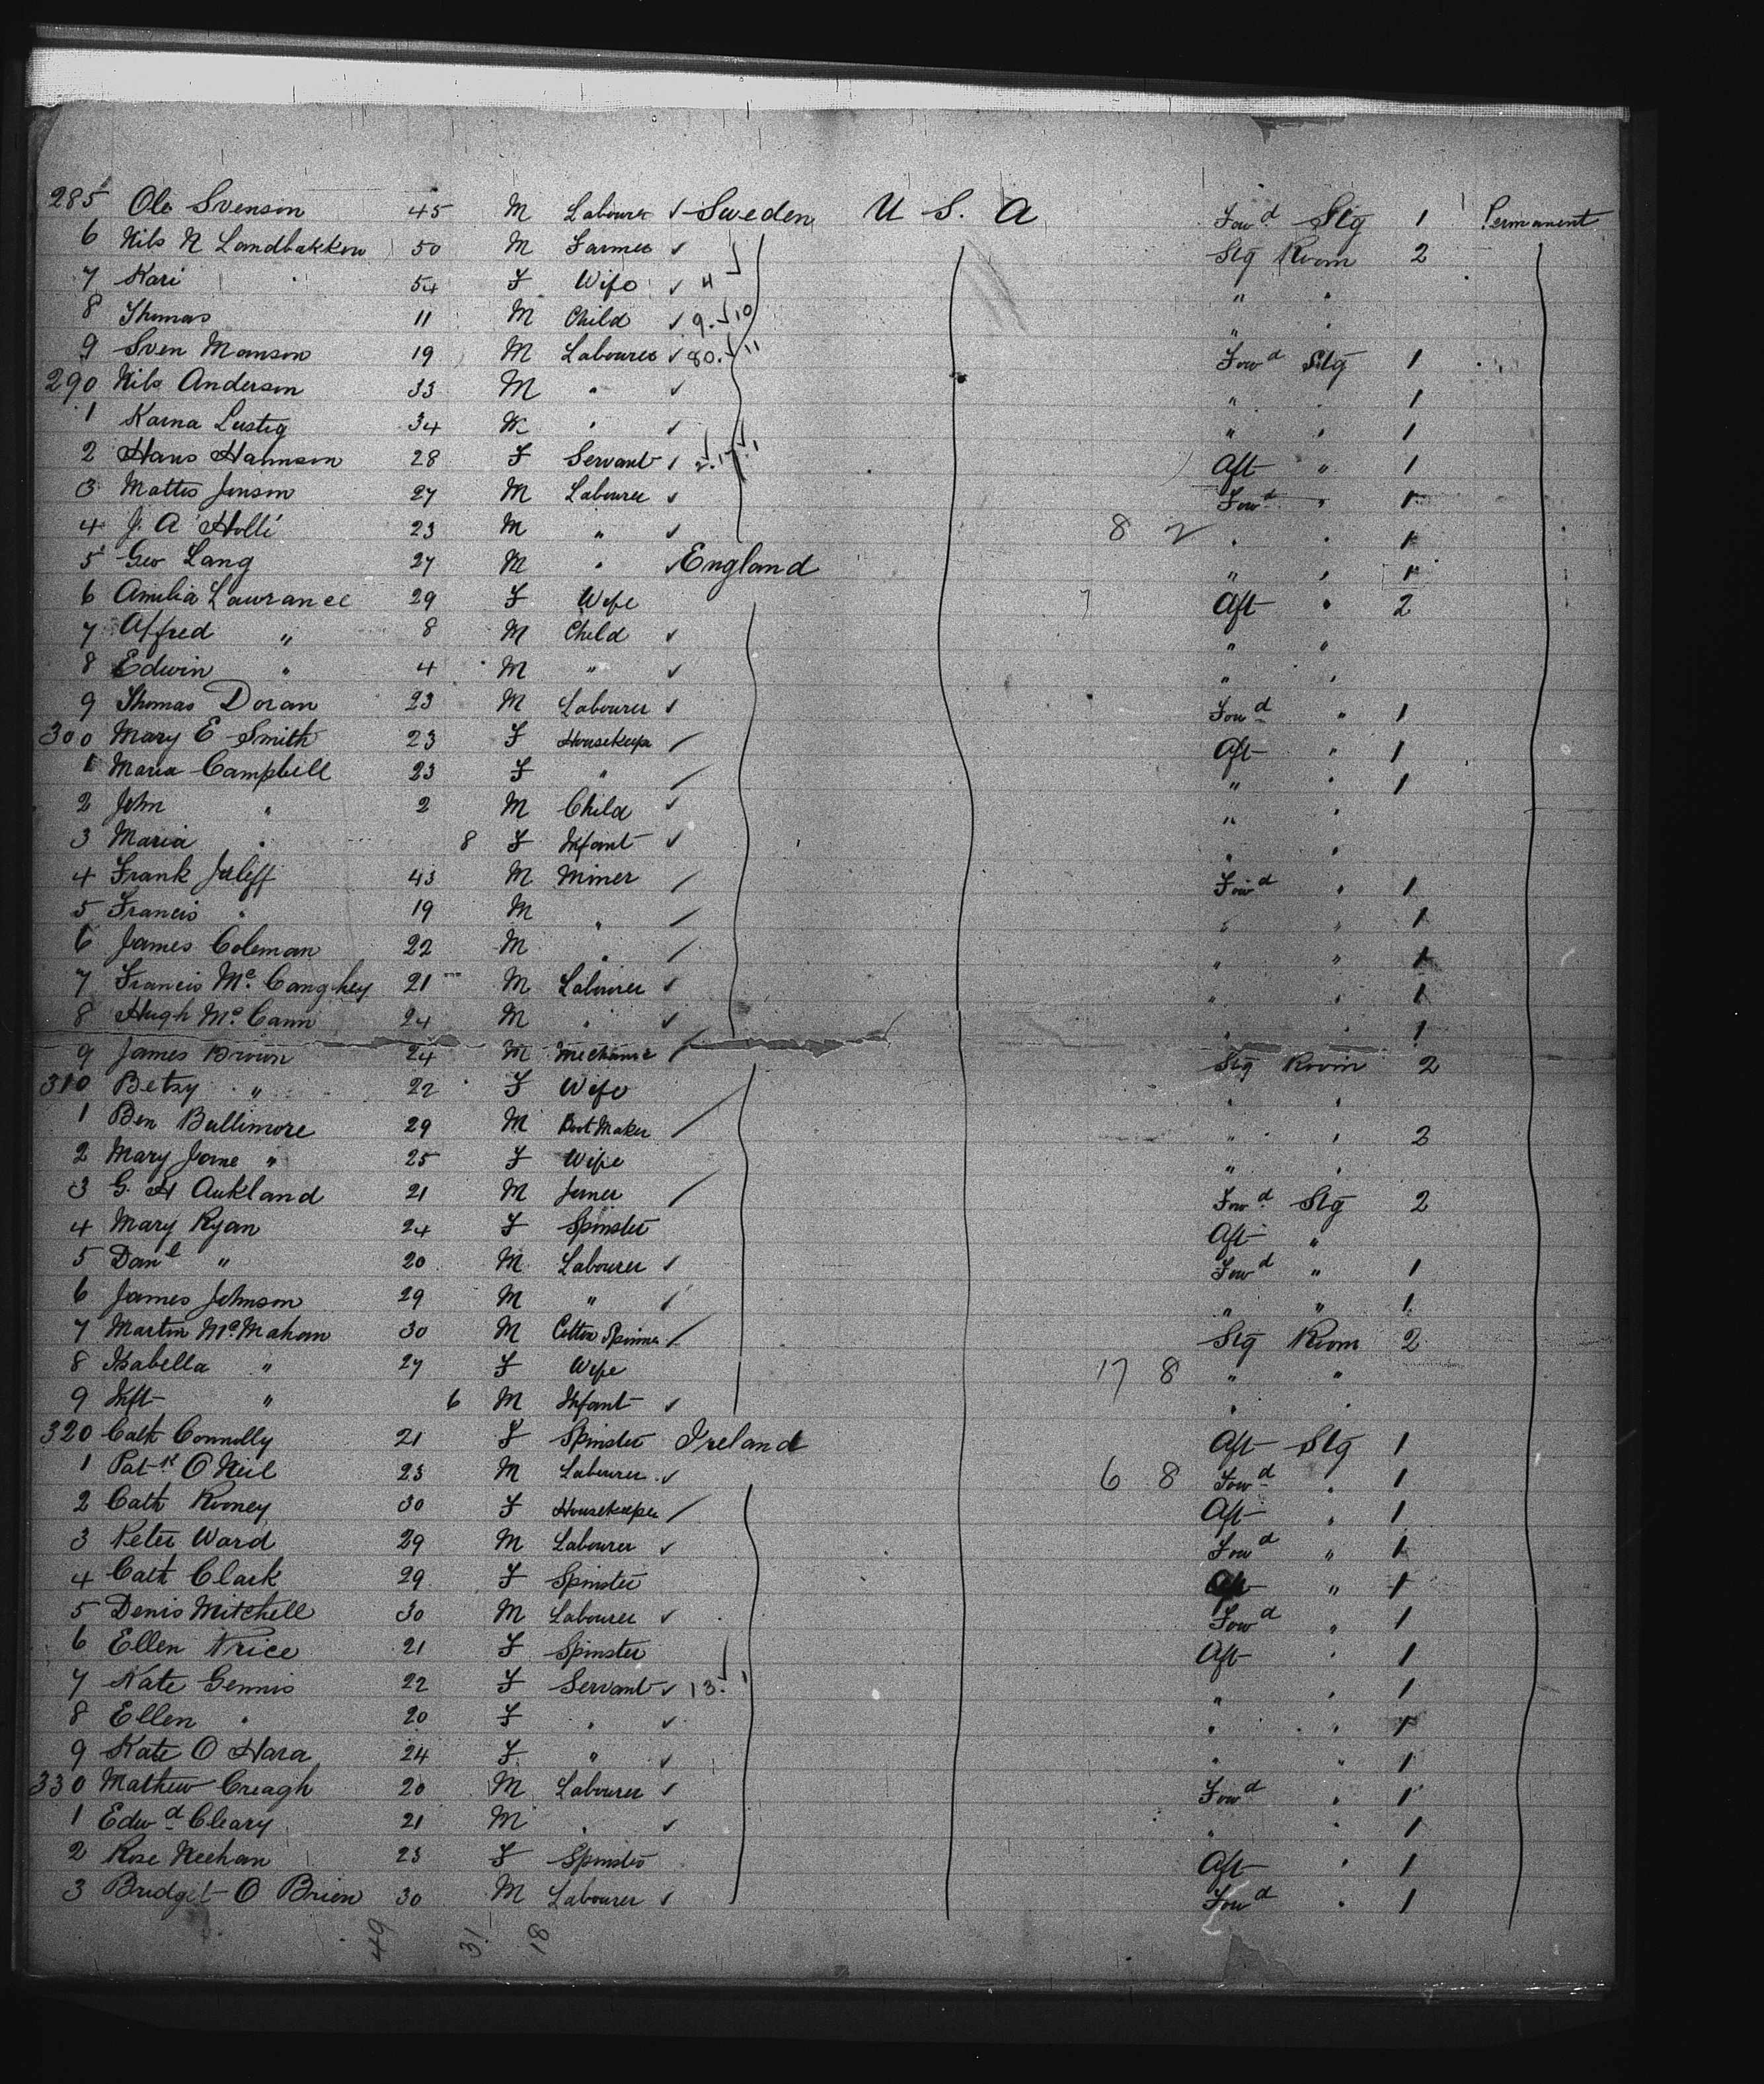 285 Ole Svenson 45 M Labourer ✓ Sweden U S. A Fowd Stg 1 Permanent
6 Nils N Landbakken 50 M Farmer ✓ Stg Room 2
7 Kari 54 F Wife ✓ 4 " "
8 Thomas 11 M Child ✓ 9. 10 " "
9 Sven Manson 19 M Labourer ✓ 80. 11 Fowd Stg 1
290 Nils Anderson 33 M " ✓ " " 1
1 Karna Lustig 34 " ✓ " " 1
2 Hans Hannson 28 F Servant ✓ Aft " 1
3 Mattis Jonson 27 M Labourer ✓ Fowd " 1
4 J. A Holli 23 M " ✓ 8 2 " " 1
5 Geo Lang 27 M " ✓ England " " 1
6 Amilia Lawrance 29 F Wife Aft " 2
7 Alfred " 8 M Child ✓ " "
8 Edwin " 4 M " ✓ " "
9 Thomas Doran 23 M Labourer ✓ Fowd " 1
300 Mary E Smith 23 F Housekeepr / Aft " 1
1 Maria Campbell 23 F " / " " 1
2 John " 2 M Child ✓ " "
3 Maria " 8 F Infant ✓ " "
4 Frank Juleff 43 M Miner / Fowd " 1
5 Francis " 19 M " / " " 1
6 James Coleman 22 M " / " " 1
7 Francis Mc Caughey 21 M Labourer ✓ " " 1
8 Hugh Mc Cann 24 M " ✓ " " 1
9 James Brown 24 M Mechanic / Stg Room 2
310 Betzy " 22 F Wife " "
1 Ben Bullimore 29 M Boot Maker / " " 2
2 Mary Jane " 25 F Wife " "
3 G. H Aukland 21 M Joiner / Fowd Stg 2
4 Mary Ryan 24 F Spinster Aft "
5 Danl " 20 M Labourer ✓ Fowd " 1
6 James Johnson 29 M " / " " 1
7 Martin Mc Mahon 30 M Cotton Spinner / Stg Room 2
8 Isabella " 27 F Wife 17 8 " "
9 Inft " 6 M Infant ✓ " "
320 Cath Connolly 21 F Spinster Ireland Aft Stg 1
1 Patk O Neil 23 M Labourer ✓ 6 8 Fowd " 1
2 Cath Rooney 30 F Housekeeper / Aft " 1
3 Peter Ward 29 M Labourer ✓ Fowd " 1
4 Cath Clark 29 F Spinster Aft " 1
5 Denis Mitchell 30 M Labourer ✓ Fowd " 1
6 Ellen Price 21 F Spinster Aft " 1
7 Kate Gennis 22 F Servant ✓ 13. 1 " " 1
8 Ellen " 20 F " ✓ " " 1
9 Kate O Hara 24 F " ✓ " " 1
330 Mathew Creagh 20 M Labourer ✓ Fowd " 1
1 Edwd Cleary 21 M " ✓ " " 1
2 Rose Meehan 23 F Spinster Aft " 1
3 Bridget O Brien 30 M Labourer ✓ Fowd " 1
49 31 18